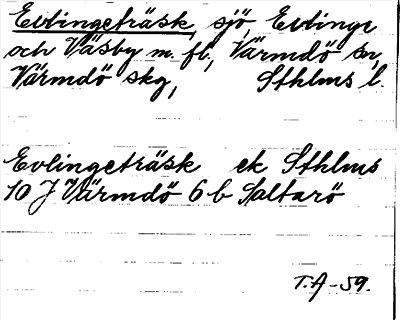 Evlingeträsk, sjö, Evlinge
och Väsby m. fl., Värmdö sn,
Värmdö skg, Sthlms l.
Evlingeträsk ek Sthlms
10 J Värmdö 6 b Saltarö
T.A-59.